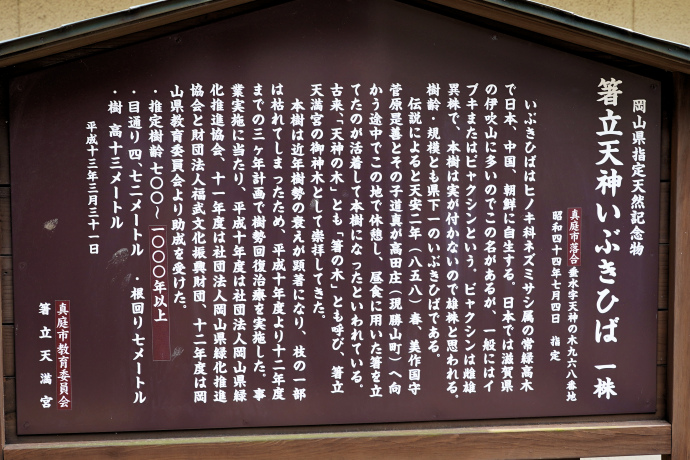 岡山県指定天然記念物
箸立天神いぶきひば 一株
真庭市落合垂水字天神の木九六八番地
昭和四十四年七月四日 指定
いぶきひばはヒノキ科ネズミサシ属の常緑高木
で日本、中国、朝鮮に自生する。日本では滋賀県
の伊吹山に多いのでこの名があるが、一般にはイ
ブキまたはビャクシンという。ビャクシンは雌雄
異株で、本樹は実が付かないので雄株と思われる。
樹齢・規模とも県下一のいぶきひばである。
伝説によると天安二年(八五八)春、美作国守
菅原是善とその子道真が高田庄(現勝山町)へ向
かう途中でこの地で休憩し、昼食に用いた箸を立
てたのが活着して本樹になったといわれている。
古来、「天神の木」とも「箸の木」とも呼び、箸立
天満宮の御神木として崇拝してきた。
本樹は近年樹勢の衰えが顕著になり、枝の一部
は枯れてしまったため、平成十年度より十二年度
までの三ヶ年計画で樹勢回復治療を実施した。事
業実施に当たり、平成十年度は社団法人岡山県緑
化推進協会、十一年度は社団法人岡山県緑化推進
協会と財団法人福武文化振興財団、十二年度は岡
山県教育委員会より助成を受けた。
・推定樹齢 七〇〇〜一〇〇〇年以上
・目通り 四、七二メートル ・根回り 七メートル
・樹 高 十三メートル
平成十三年三月三十一日
真庭市教育委員会
箸立天満宮